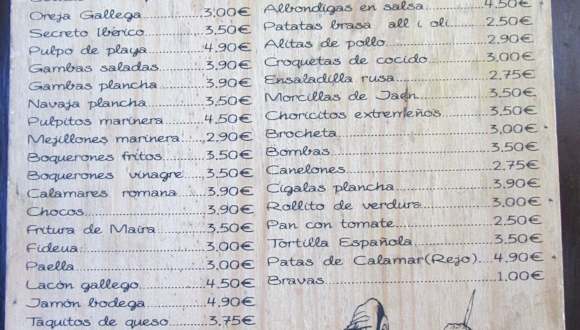 Oreja Gallega 3,00€
Secreto Ibérico 3,50€
Pulpo de playa 4,90€
Gambas saladas 3,90€
Gambas plancha 3,90€
Navaja plancha 3,50€
Pulpitos marinera 4,50€
Mejillones marinera 2,90€
Boquerones fritos 3,50€
Boquerones vinagre 3,50€
Calamares romana 3,90€
Chocos 3,90€
Fritura de Maira 3,50€
Fideua 3,00€
Paella 3,00€
Lacón gallego 4,50€
Jamón bodega 4,90€
Taquitos de queso 3,75€
Albondigas en salsa 4,50€
Patatas brasa all i oli 2,50€
Alitas de pollo 2,90€
Croquetas de cocido 3,00€
Ensaladilla rusa 2,75€
Morcillas de Jaén 3,50€
Choricitos extremeños 3,50€
Brocheta 3,00€
Bombas 3,50€
Canelones 2,75€
Cigalas plancha 3,90€
Rollito de verdura 3,00€
Pan con tomate 2,50€
Tortilla Española 3,50€
Patas de Calamar(Rejo) 4,90€
Bravas 1,00€